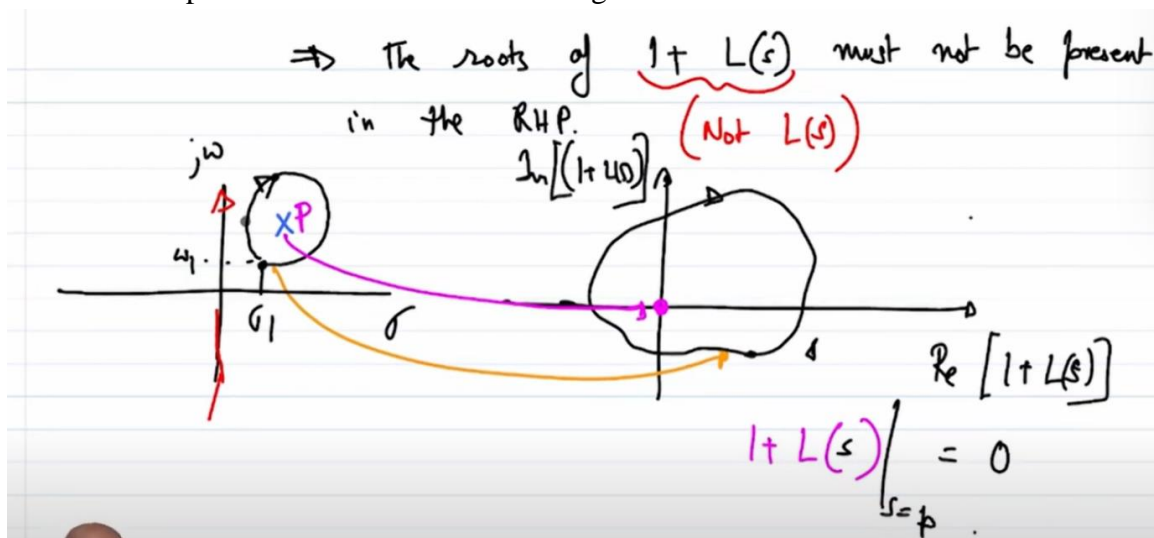 ⇒ The roots of 1 + L(s) must not be present
in the RHP. (Not L(s))
jω
Im[(1 + L(s))]
xP
ω1
σ1
σ
Re [1 + L(s)]
1 + L(s)|s=p = 0